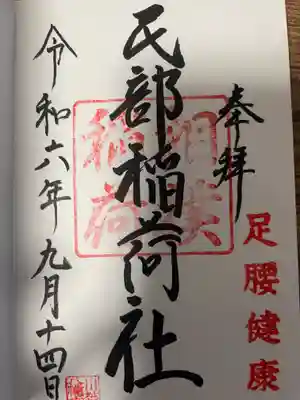 奉拝
足腰健康
氏部稲荷社
令和六年九月十四日